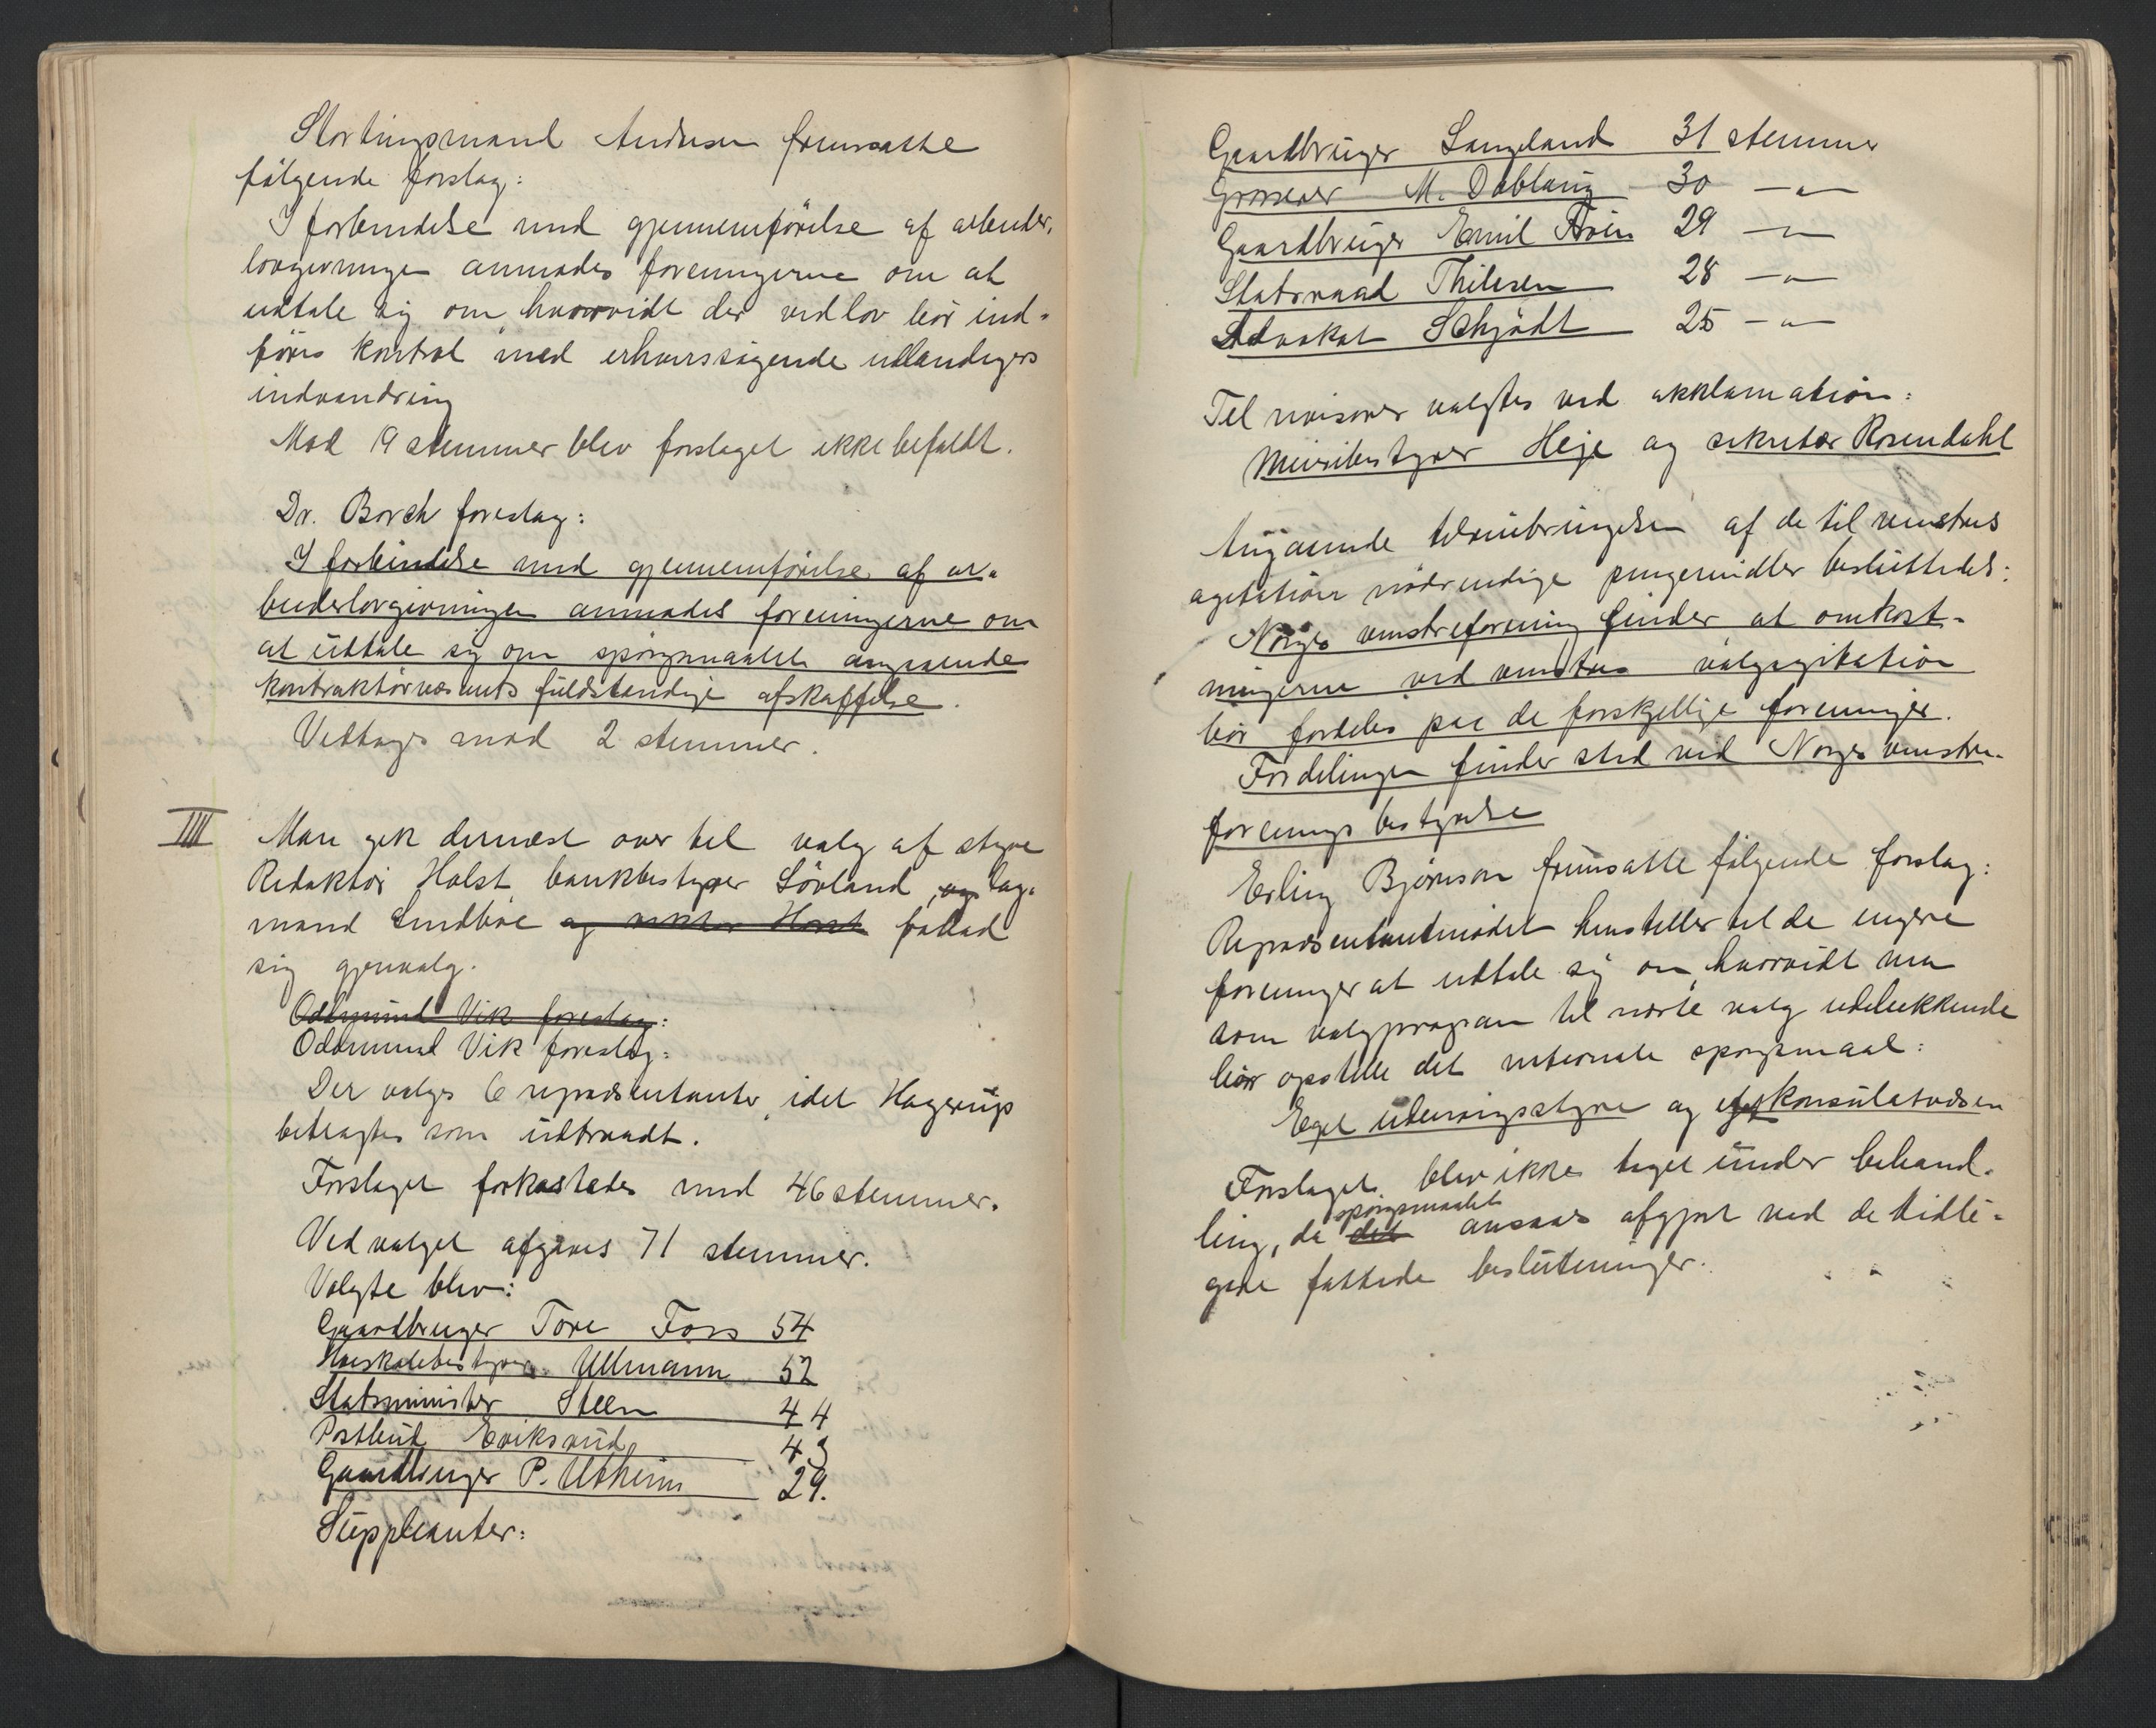 Stortingsmand Andersen fremsatte
følgende forslag:
I forbindelse med gjennemførelse af arbeider-
lovgivningen anmodes foreningerne om at
udtale sig om hvorvidt der ved lov bør ind-
føres kontrol med erhvervssøgende udlændigers
indvandring
Mod 19 stemmer blev forslaget ikke befaldt.
Dr. Borch foreslog:
I forbindelse med gjennemførelse af ar-
beiderlovgivningen anmodes foreningerne om
at udtale sig om spørgsmaalet angaaende
kontraktørvæsenets fuldstændige afskaffelse.
Vedtoges mod 2 stemmer.
IIII Man gik dernæst over til valg af styre
Redaktør Holst bankbestyrer Løvland, og lag-
mand Lindboe og rektor Horst frabad
sig gjenvalg.
Oddmund Vik foreslog:
Oddmund Vik foreslog:
Der vælges 6 repræsentanter, idet Hagerup
betragtes som udtraadt.
Forslaget forkastedes med 46 stemmer.
Ved valget afgaves 71 stemmer.
Valgte blev:
Gaardbruger Tore Foss 54
Høiskolebestyrer Ullmann 52
Statsminister Steen 44
Postbud Eriksrud 43
Gaardbruger P. Utheim 29.
Suppleanter:
Gaardbruger Langeland 31 stemmer
Grosserer M. Dobloug 30 —"—
Gaardbruger Emil Foien 29 —"—
Statsraad Thilesen 28 —"—
Advokat Schjødt 25 —"—
Til revisorer valgtes ved akklamation:
Meieribestyrer Heje og sekretær Rosendahl
Angaaende tilveiebringelsen af de til venstres
agitation nødvendige pengemidler besluttedes:
Norges venstreforening finder at omkost-
ningerne ved venstres valgagitation
bør fordeles paa de forskjellige foreninger.
Fordelingen finder sted ved Norges venstre-
forenings bestyrelse
Erling Bjørnson fremsatte følgende forslag:
Repræsentantmødet henstiller til de engere
foreninger at udtale sig om, hvorvidt man
som valgprogram til næste valg udelukkende
bør opstille det nationale spørgsmaal:
Eget udenrigsstyre og eget konsulatvæsen
Forslaget blev ikke taget under behand-
ling, da det spørgsmaalet ansaaes afgjort ved de tidli-
gere fattede beslutninger.